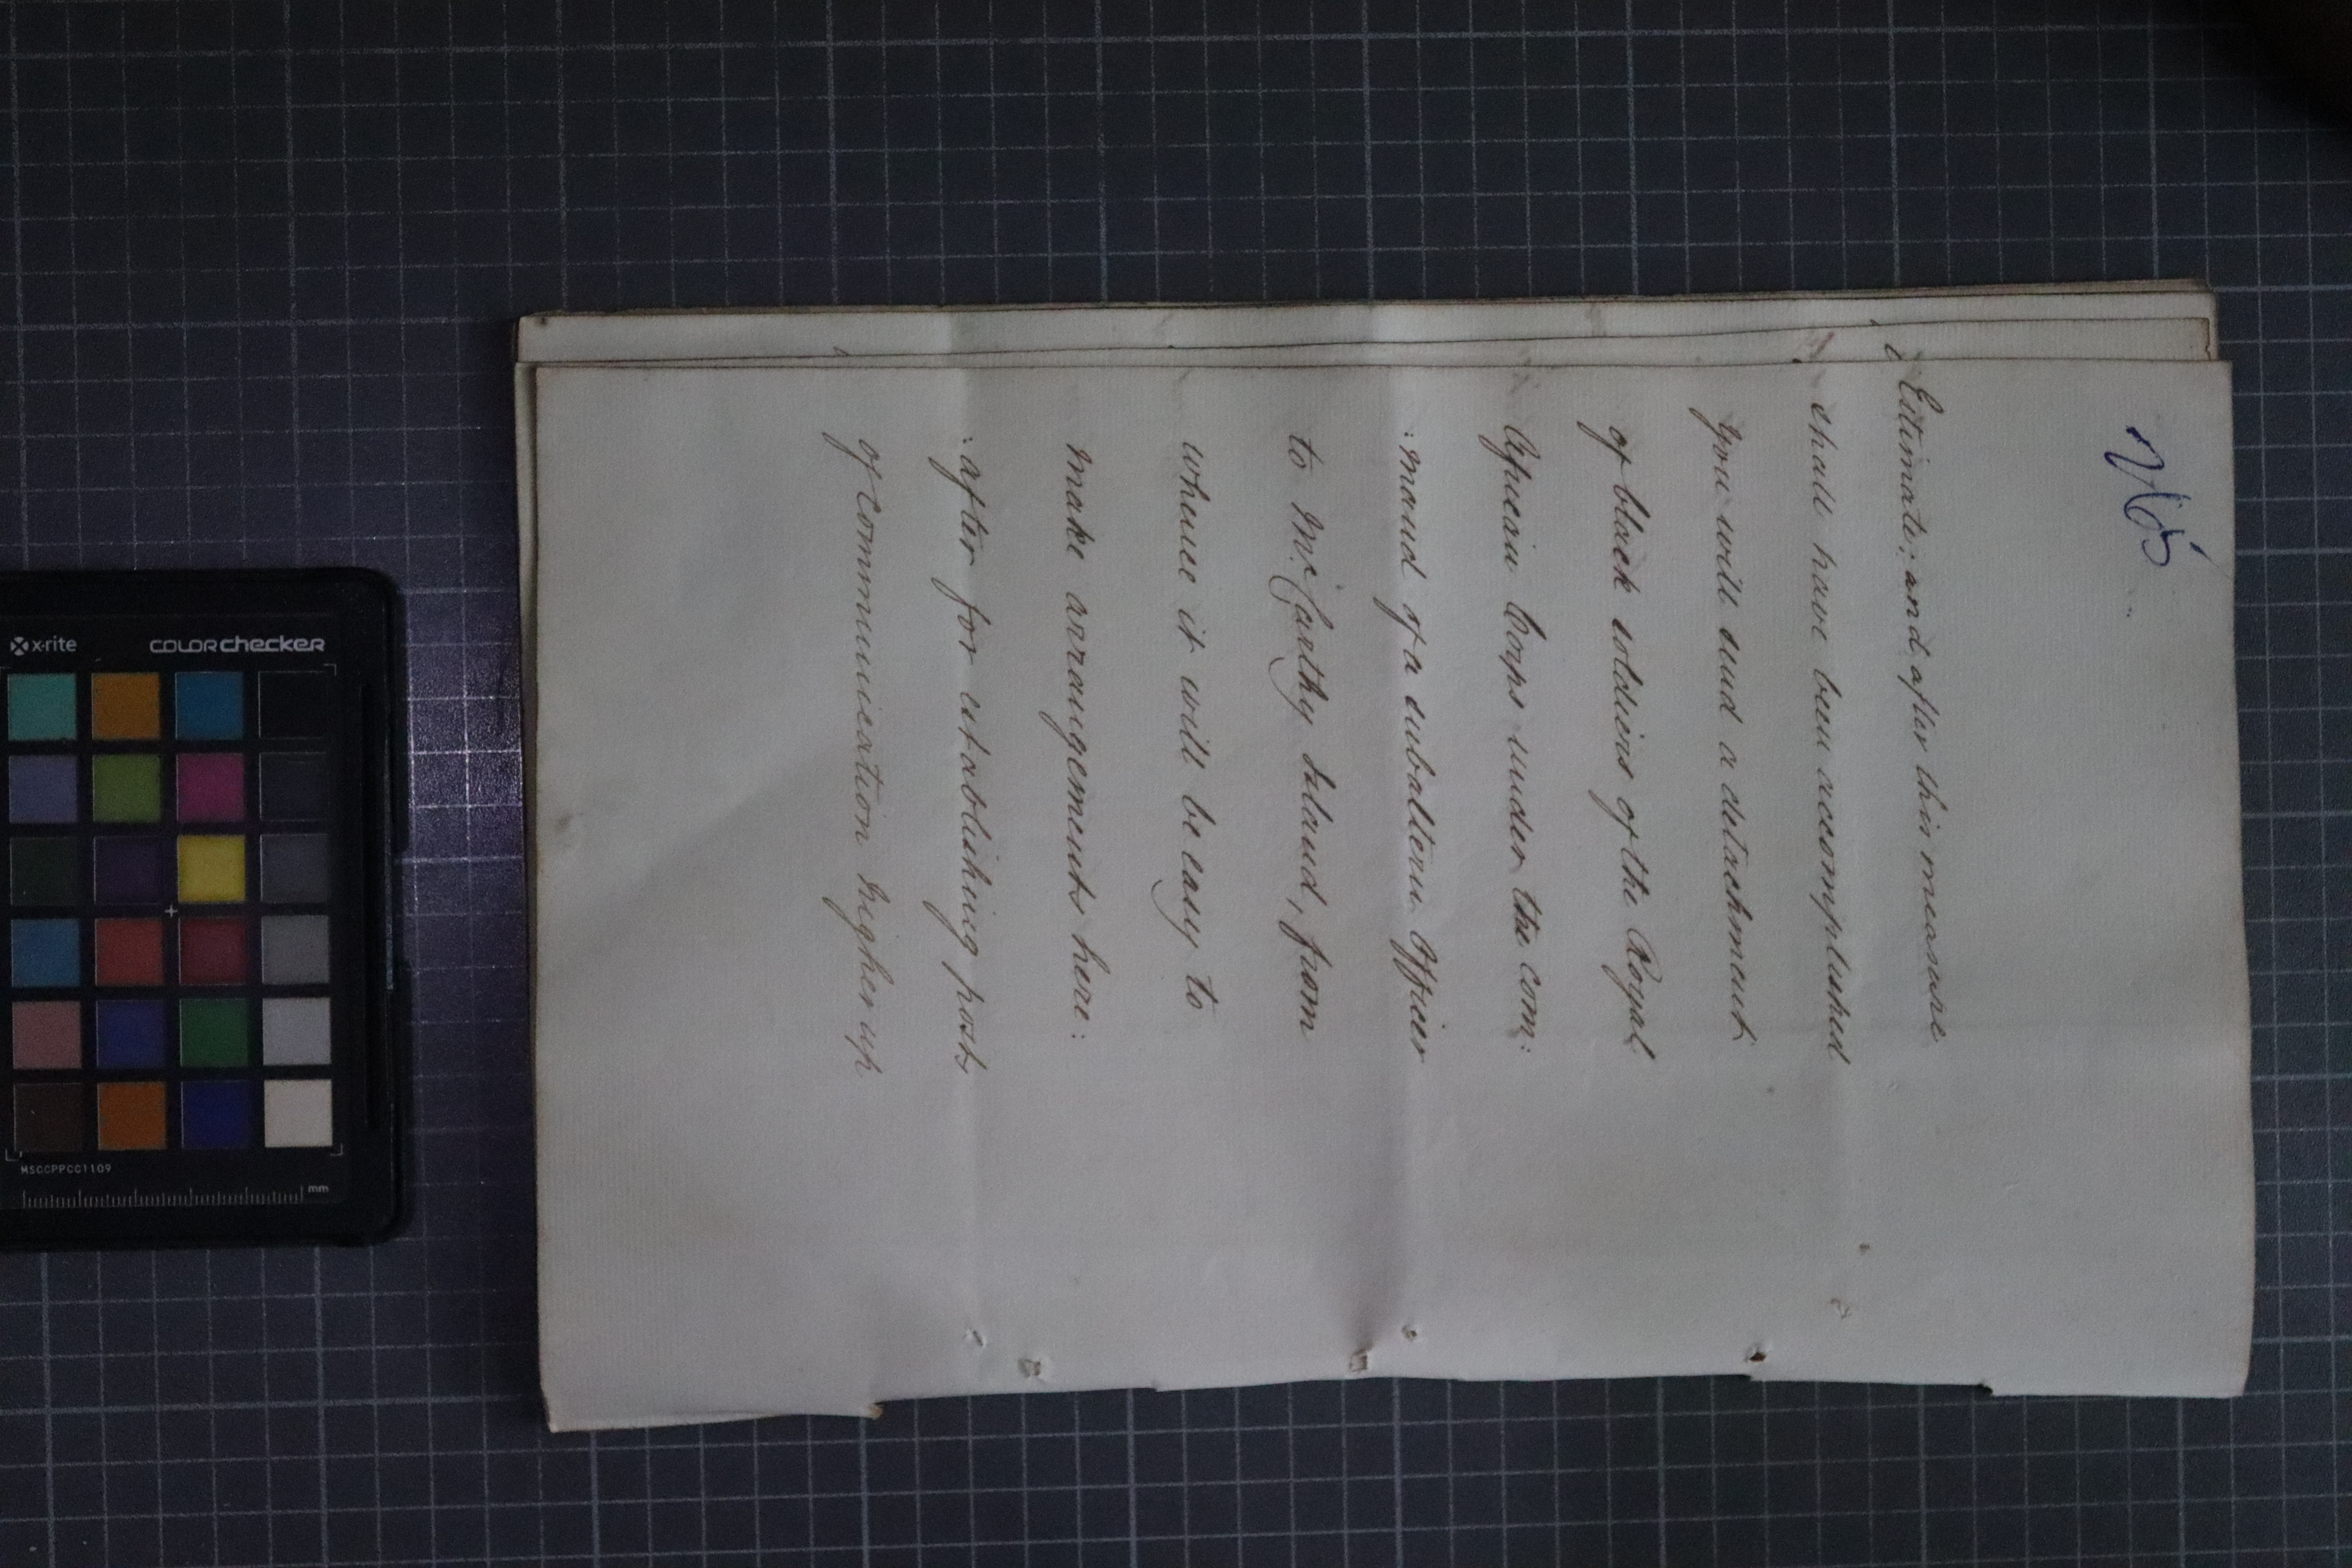 Estimate; and, after this measure
shall have been accomplished
you will send a detachment
of black soldiers of the Royal
African Corps under the com:
:mand of a subaltern Officer
to McCarthy Island, from
whence it will be easy to
make arrangements here:
:after for establishing posts
of communication higher up
x-rite
COLORchecker
MSCCPPCC1109
mm